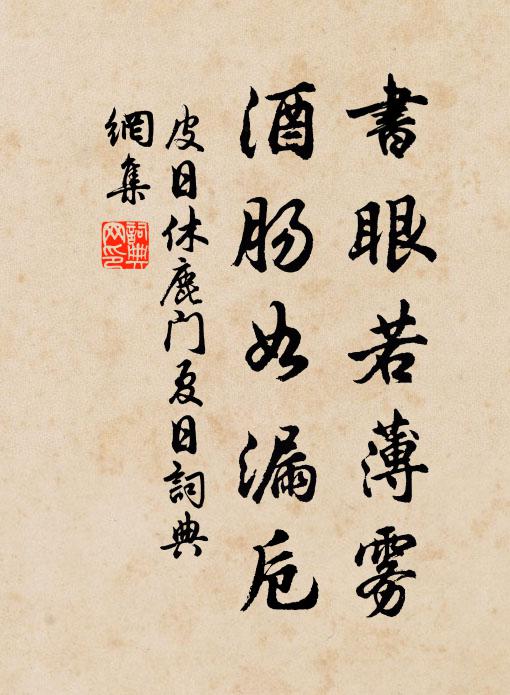 書眼若薄雾
酒肠如漏卮
皮日休鹿门夏日詞典
網集
詞典网印